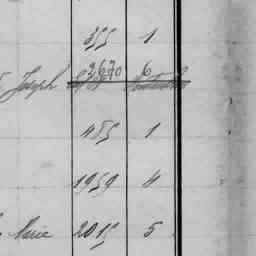 355 1
2670 6
Joseph
455 1
1959 4
Marie 2015 5